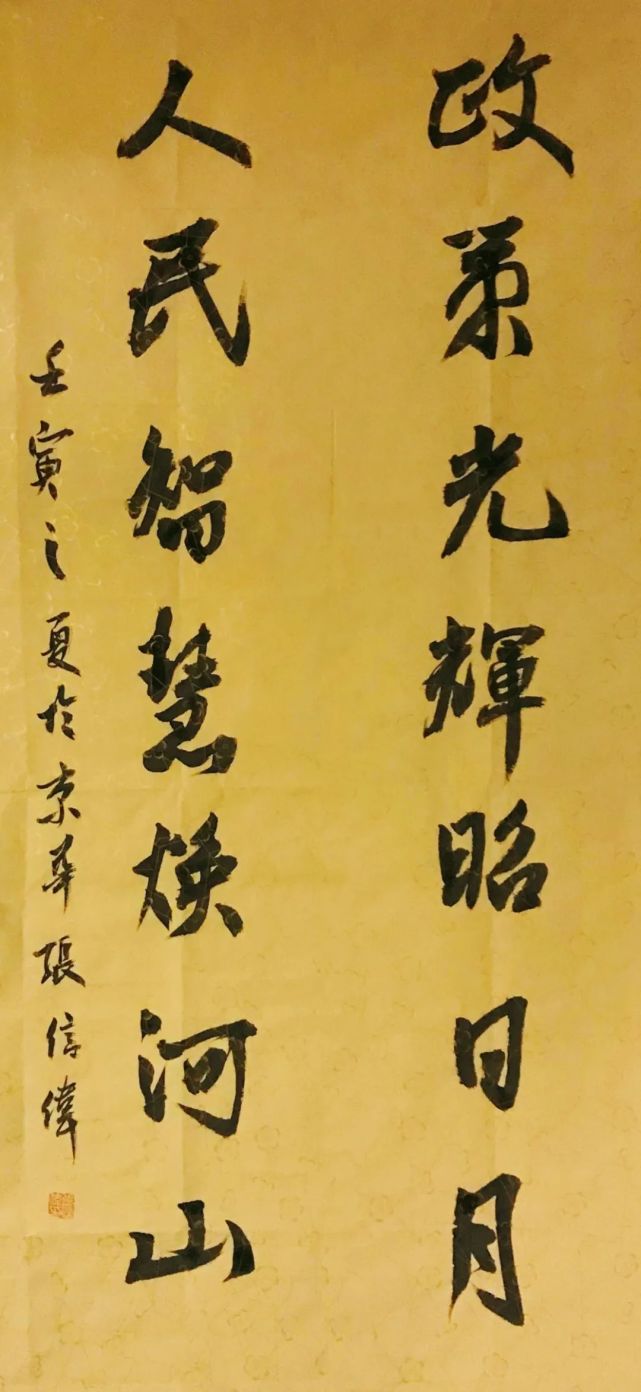 政策光輝昭日月
人民智慧焕河山
壬寅之夏於京華張信偉